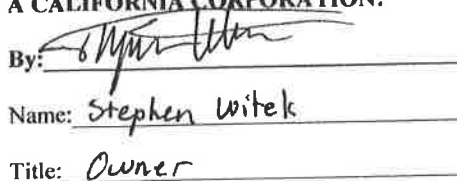 A CALIFORNIA CORPORATION:
By:
Name: Stephen Witek
Title: Owner